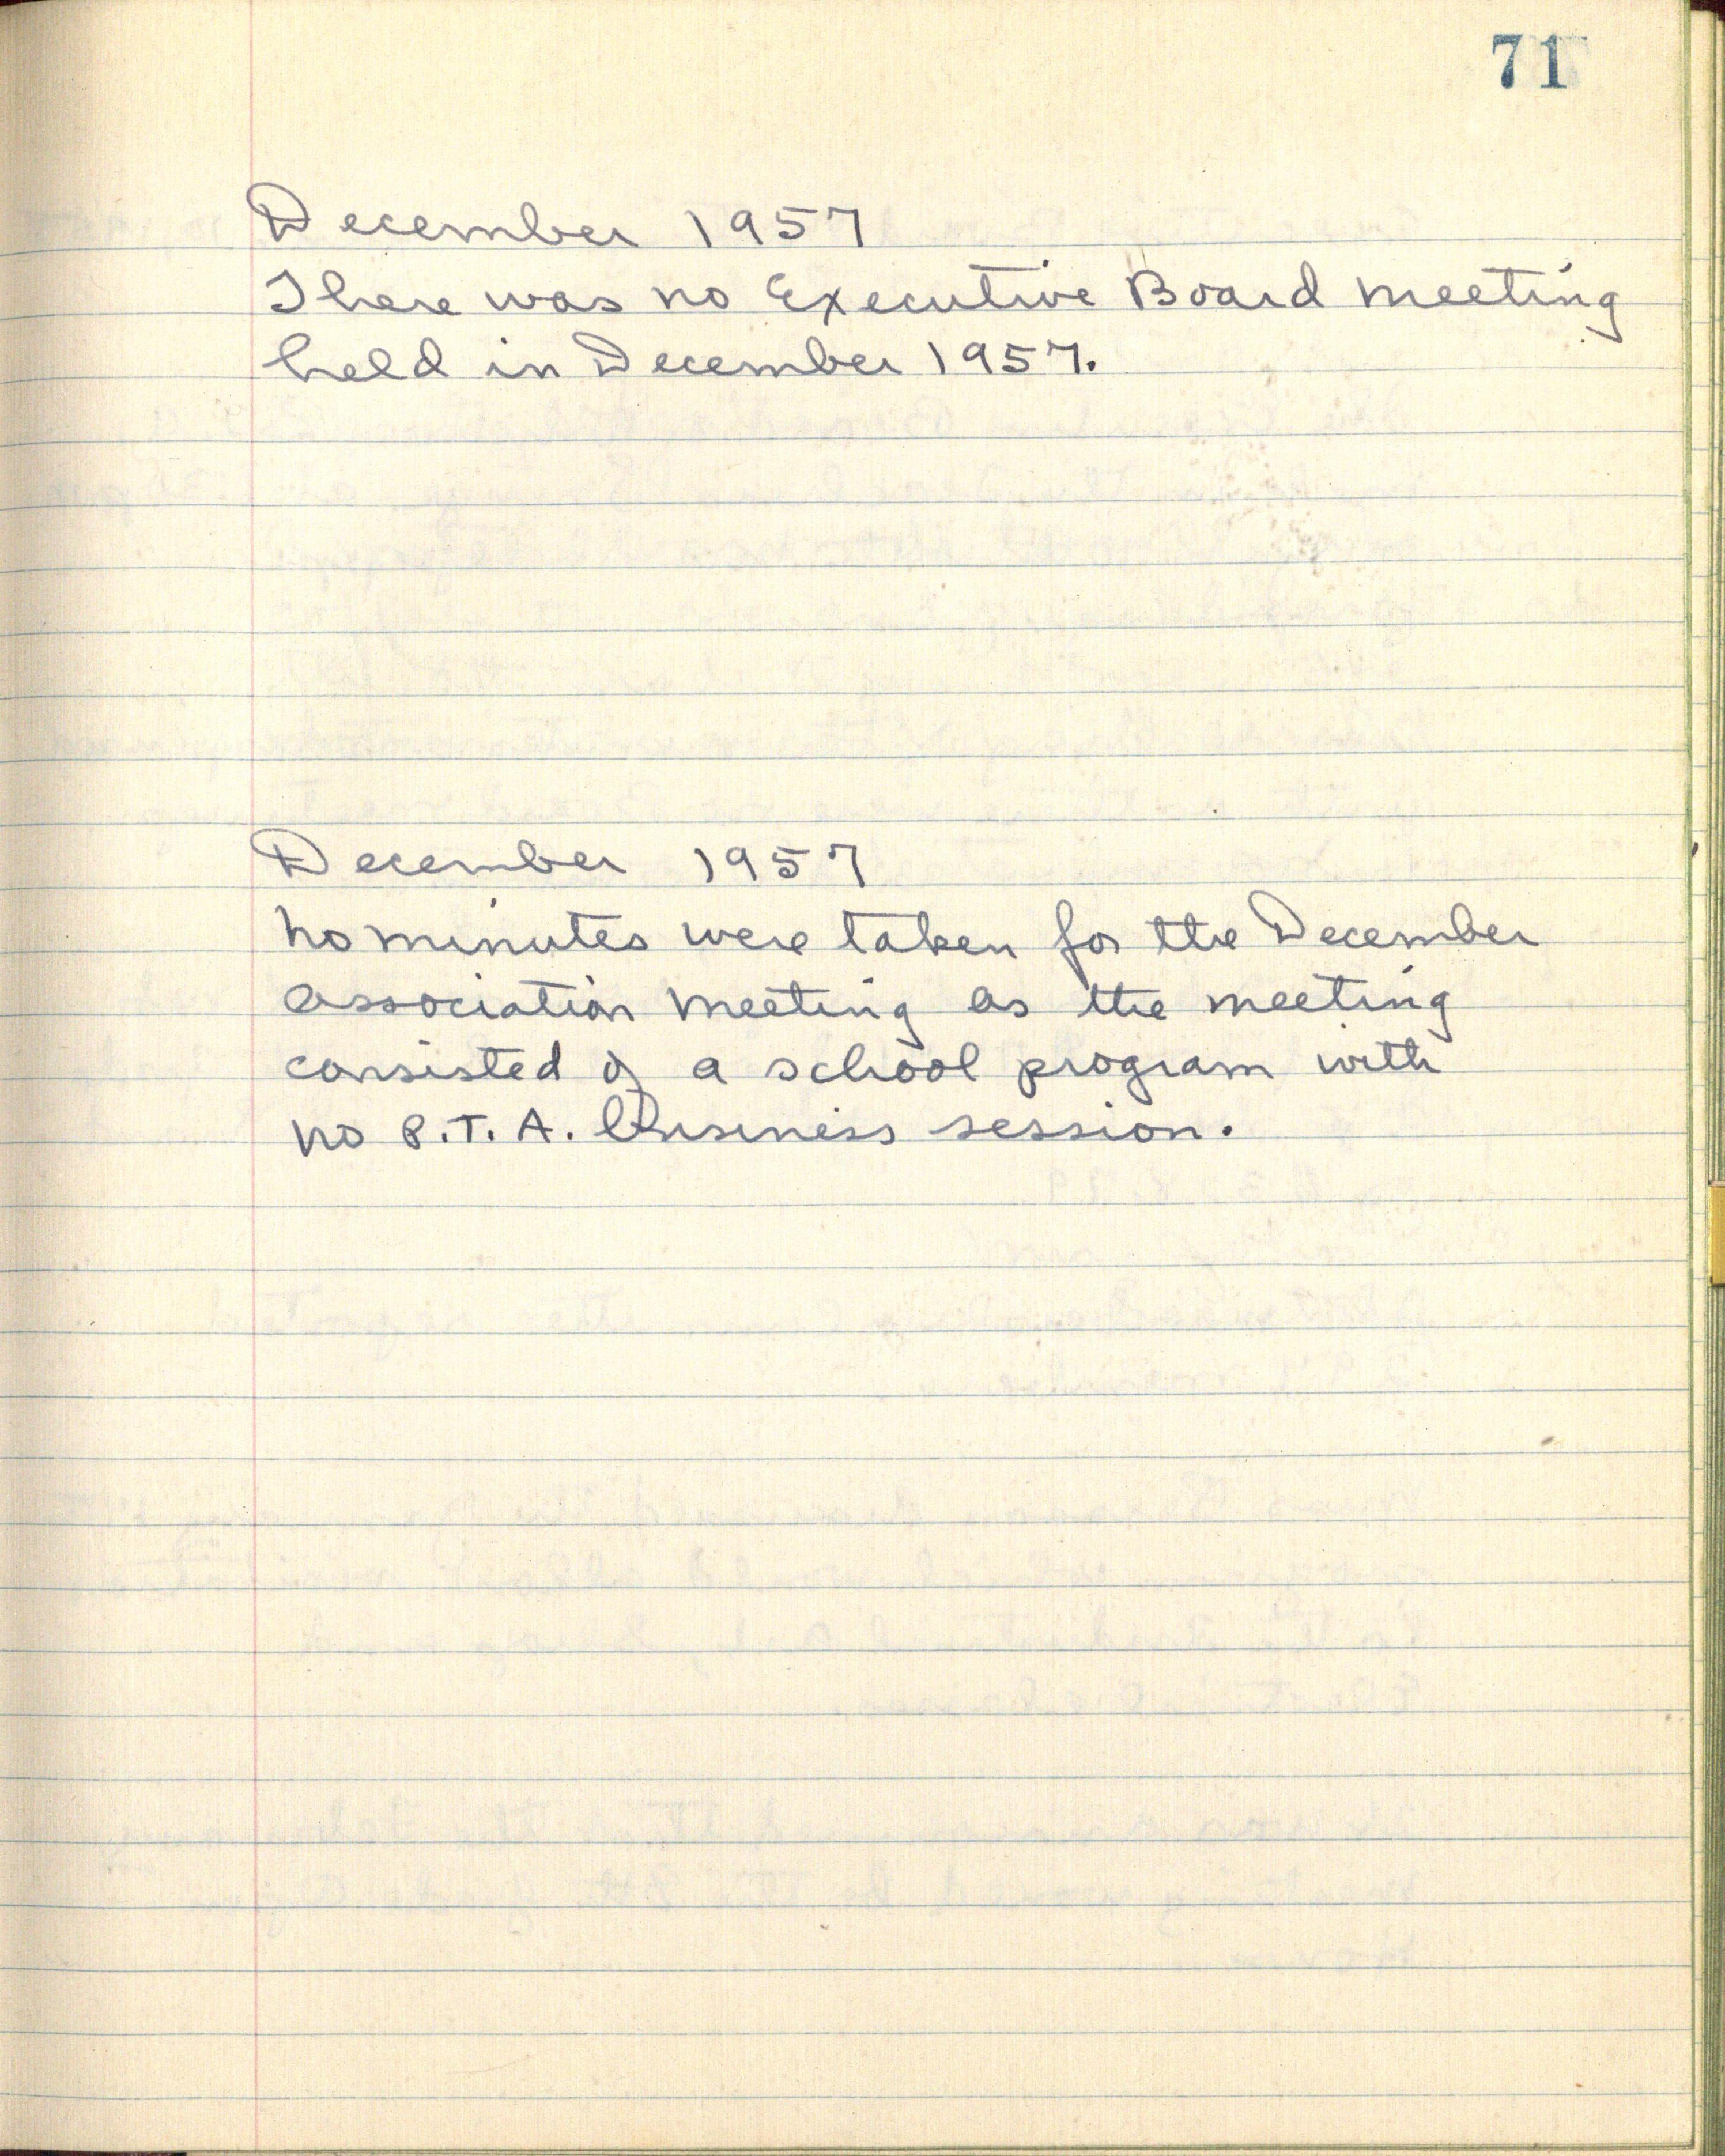 71
December 1957
There was no Executive Board meeting
held in December 1957.
December 1957
No minutes were taken for the December
association meeting as the meeting
consisted of a school program with
no P.T.A. Business session.